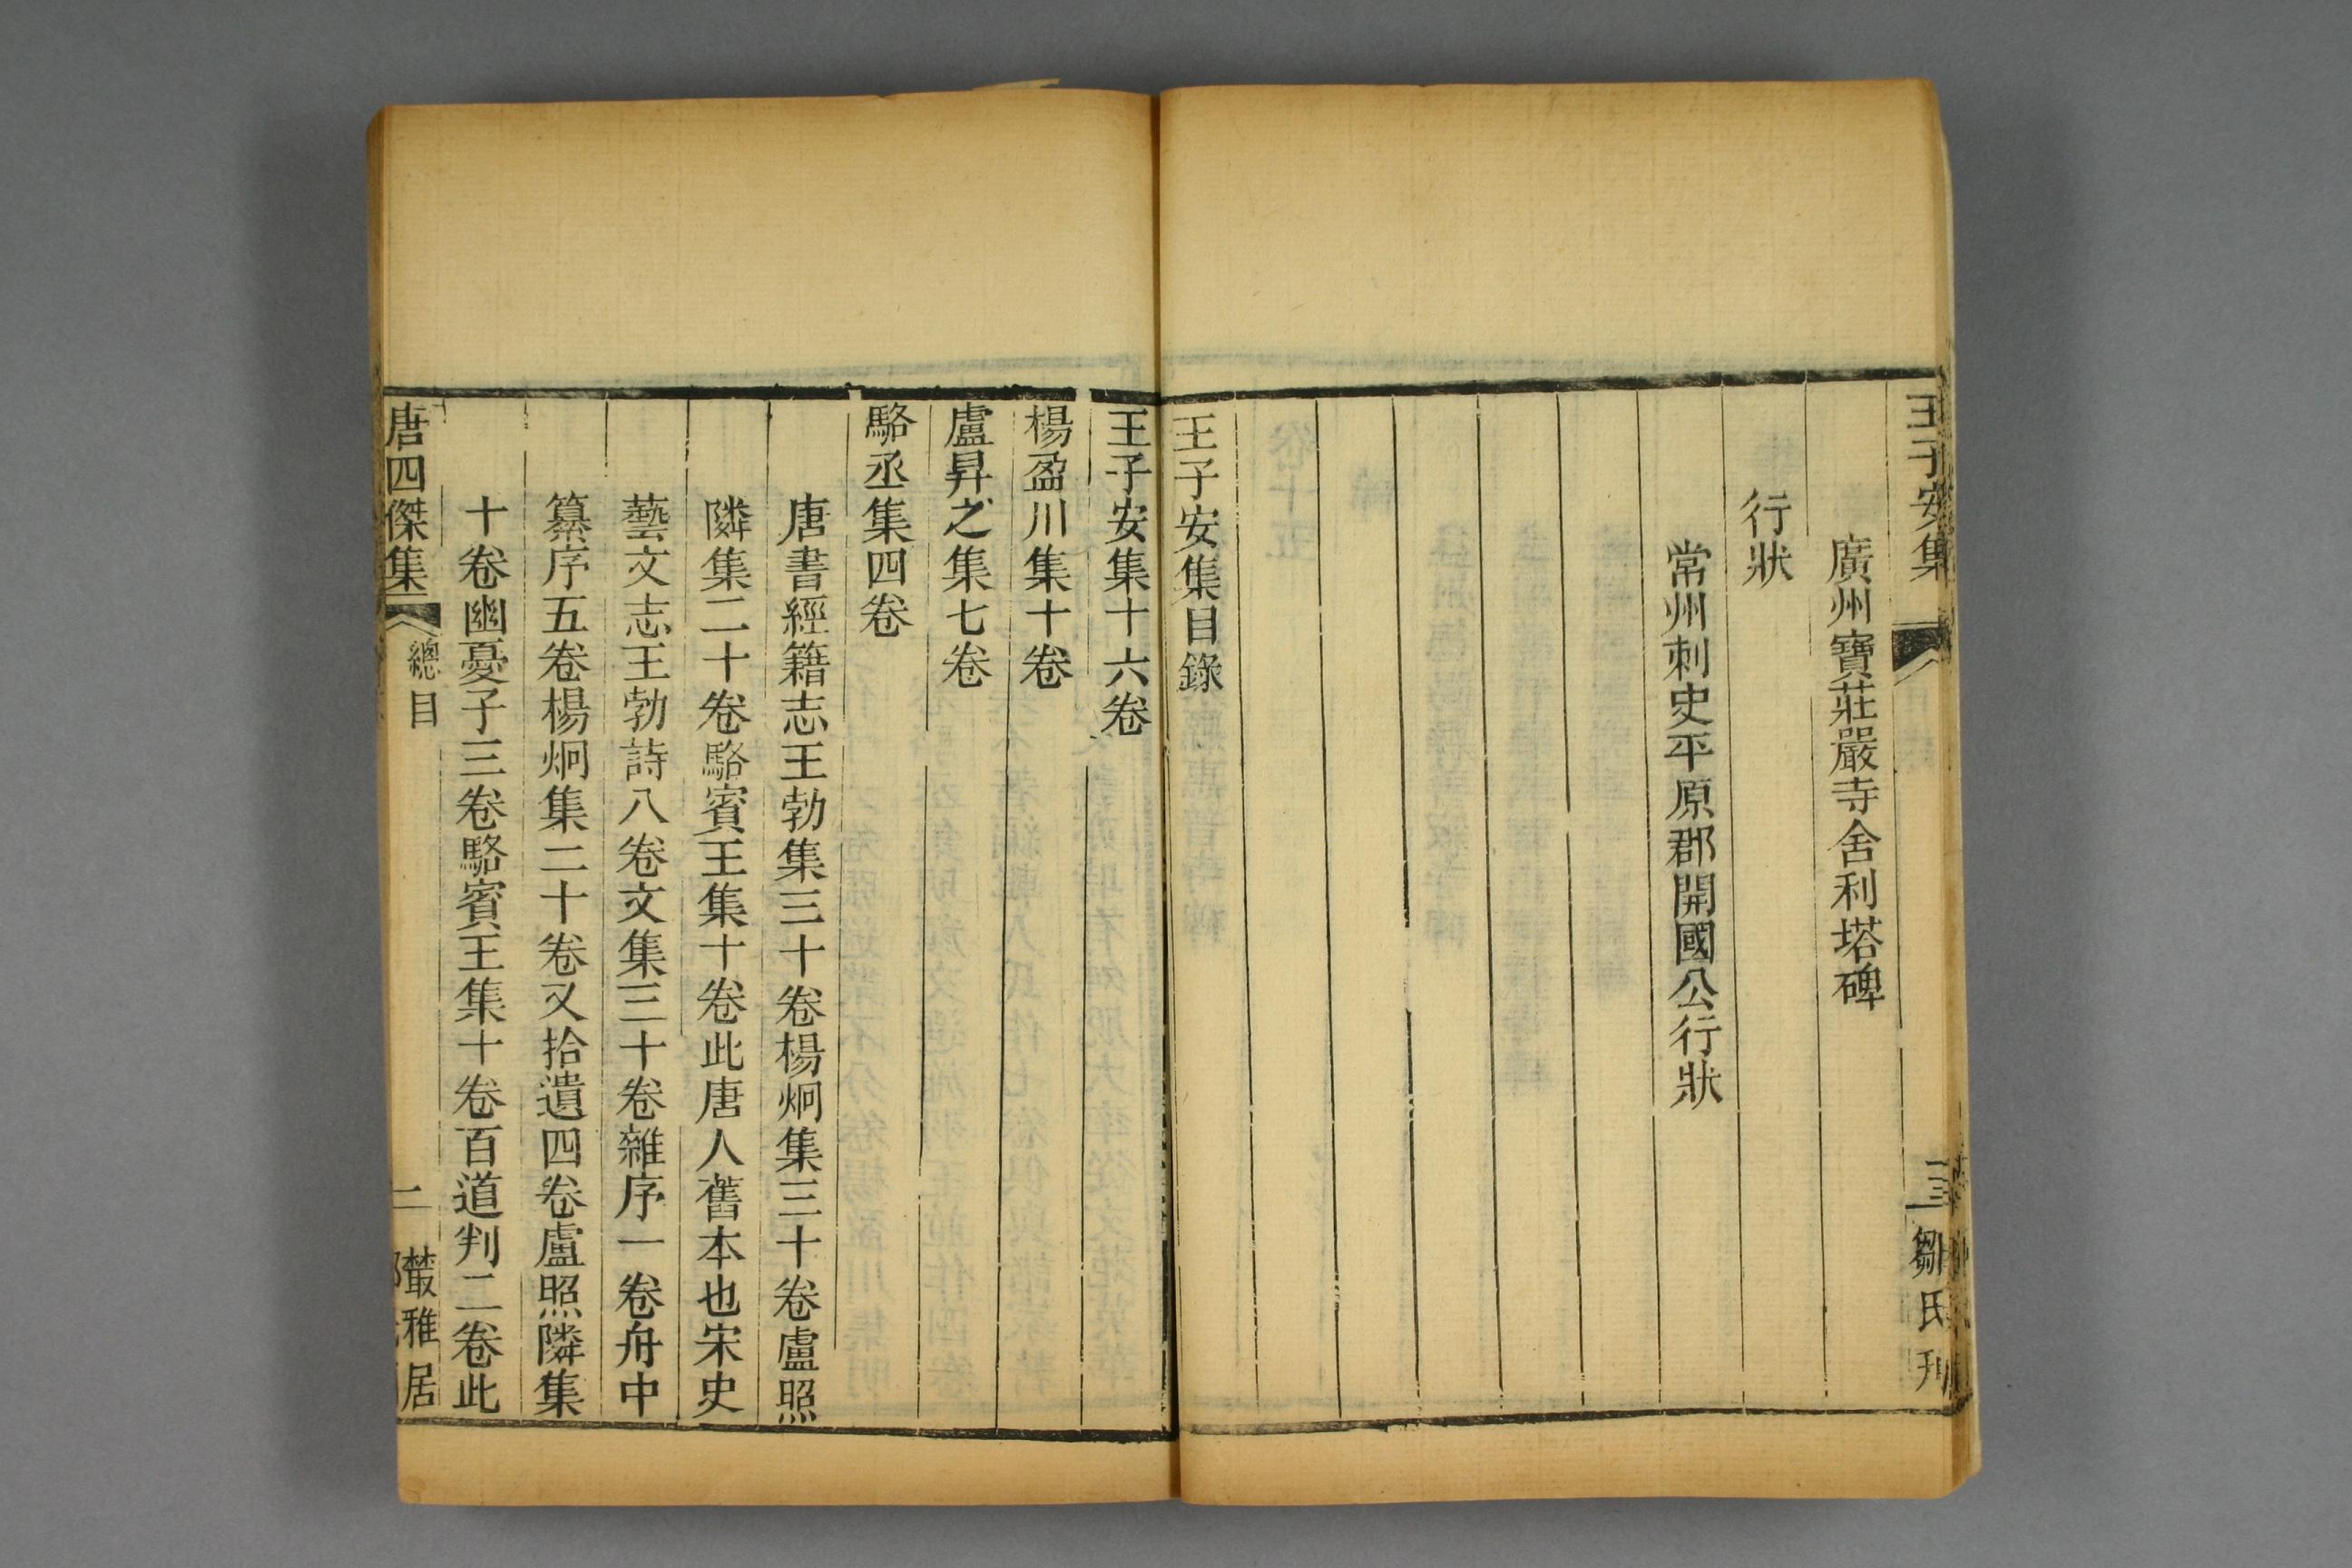 王子安集
三
鄒氏刊
廣州寶莊嚴寺舍利塔碑
行狀
常州刺史平原郡開國公行狀
王子安集目錄
王子安集十六卷
楊盈川集十卷
盧昇之集七卷
駱丞集四卷
唐書經籍志王勃集三十卷楊炯集三十卷盧照
隣集二十卷駱賓王集十卷此唐人舊本也宋史
藝文志王勃詩八卷文集三十卷雜序一卷舟中
纂序五卷楊炯集二十卷又拾遺四卷盧照隣集
十卷幽憂子三卷駱賓王集十卷百道判二卷此
唐四傑集
總目
二
叢雅居